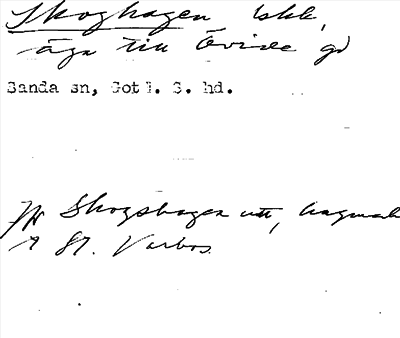 Skoghagen bkk,
äga till Övide gd
Sanda sn, Gotl. S. hd.
Jfr Skogshagen utt, hagmark
St. Varbos